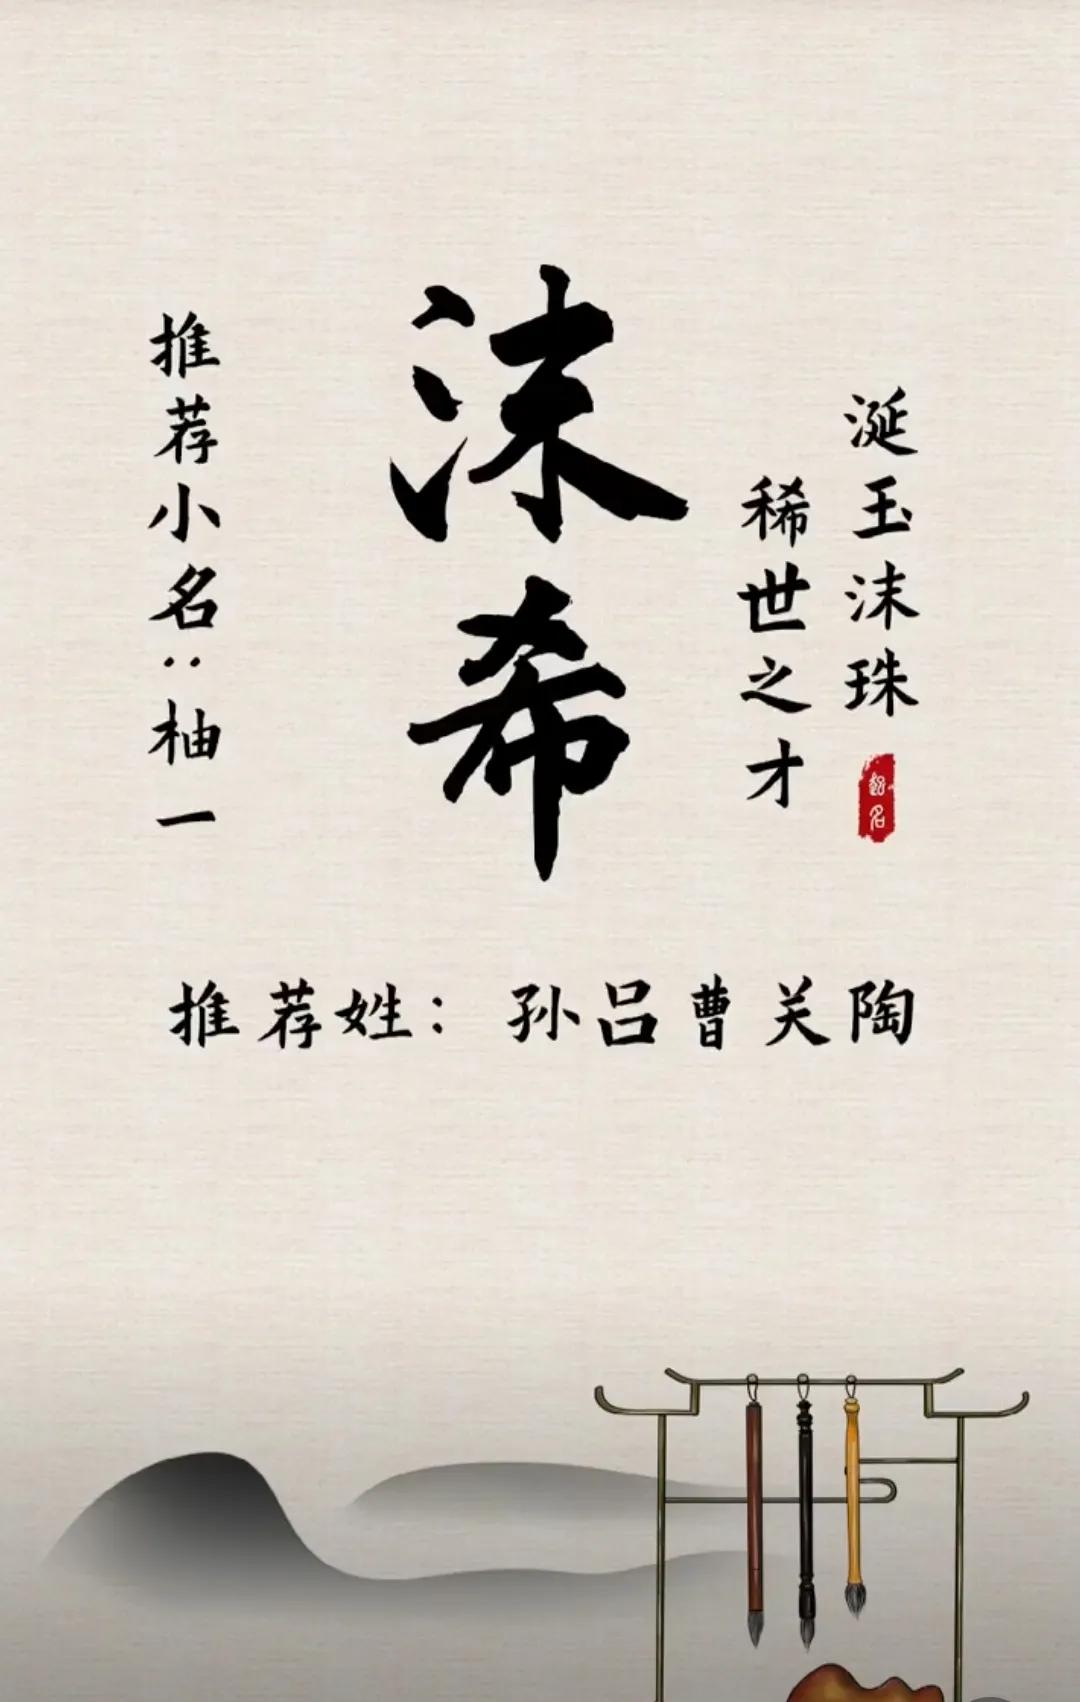 涎玉沫珠
稀世之才
沫希
推荐小名：柚一
推荐姓：孙吕曹关陶